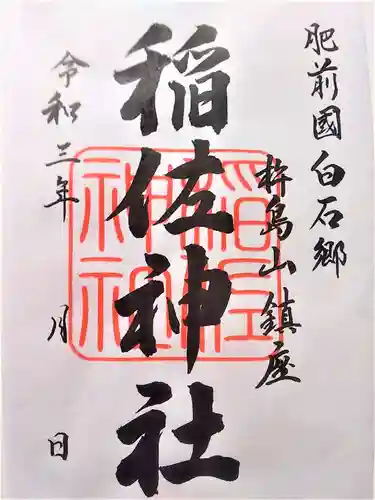 肥前國白石郷
杵島山鎮座
稲佐神社
令和三年 月 日
稲佐神社